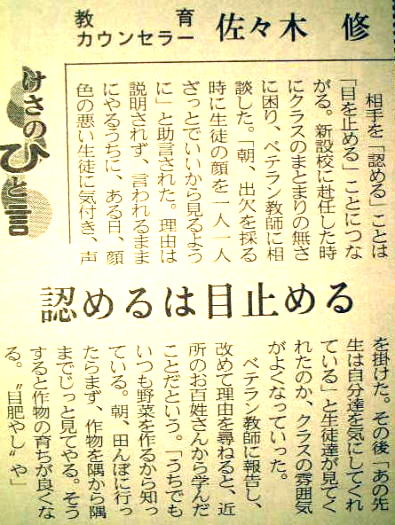 けさのひと言
教育
カウンセラー
佐々木 修
認めるは目止める
相手を「認める」ことは
「目を止める」ことにつな
がる。新設校に赴任した時
にクラスのまとまりの無さ
に困り、ベテラン教師に相
談した。「朝、出欠を採る
時に生徒の顔を一人一人
ざっとでいいから見るよう
に」と助言された。理由は
説明されず、言われるまま
にやるうちに、ある日、顔
色の悪い生徒に気付き、声
を掛けた。その後「あの先
生は自分達を気にしてくれ
ている」と生徒達が見てく
れたのか、クラスの雰囲気
がよくなっていった。
ベテラン教師に報告し、
改めて理由を尋ねると、近
所のお百姓さんから学んだ
ことだという。「うちでも
いつも野菜を作るから知っ
ている。朝、田んぼに行っ
たらまず、作物を隅から隅
までじっと見てやる。そう
すると作物の育ちが良くな
る。〝目肥やし〟や」